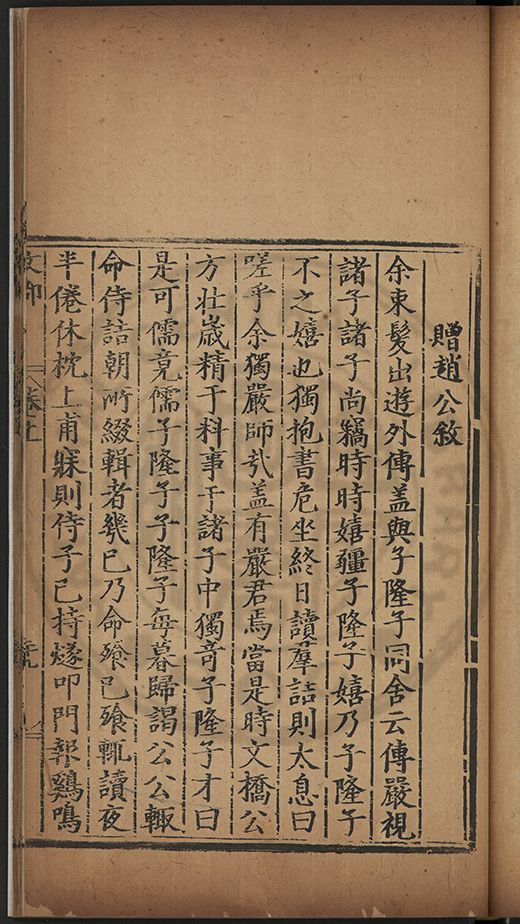 贈趙公敘
余束髮出遊外傅盖與子隆子同舍云傅嚴視
諸子諸子尚竊時時嬉彊子隆子嬉乃子隆子
不之嬉也獨抱書危坐終日讀羣詰則太息曰
嗟乎余獨嚴師㢤盖有嚴君焉當是時文橋公
方壯嵗精于料事于諸子中獨竒子隆子才曰
是可儒竟儒子隆子子隆子每暮歸謁公公輙
命侍詰朝所綴輯者幾已乃命飱已飱輒讀夜
半倦休枕上甫寐則侍子已持燧叩門報鷄鳴